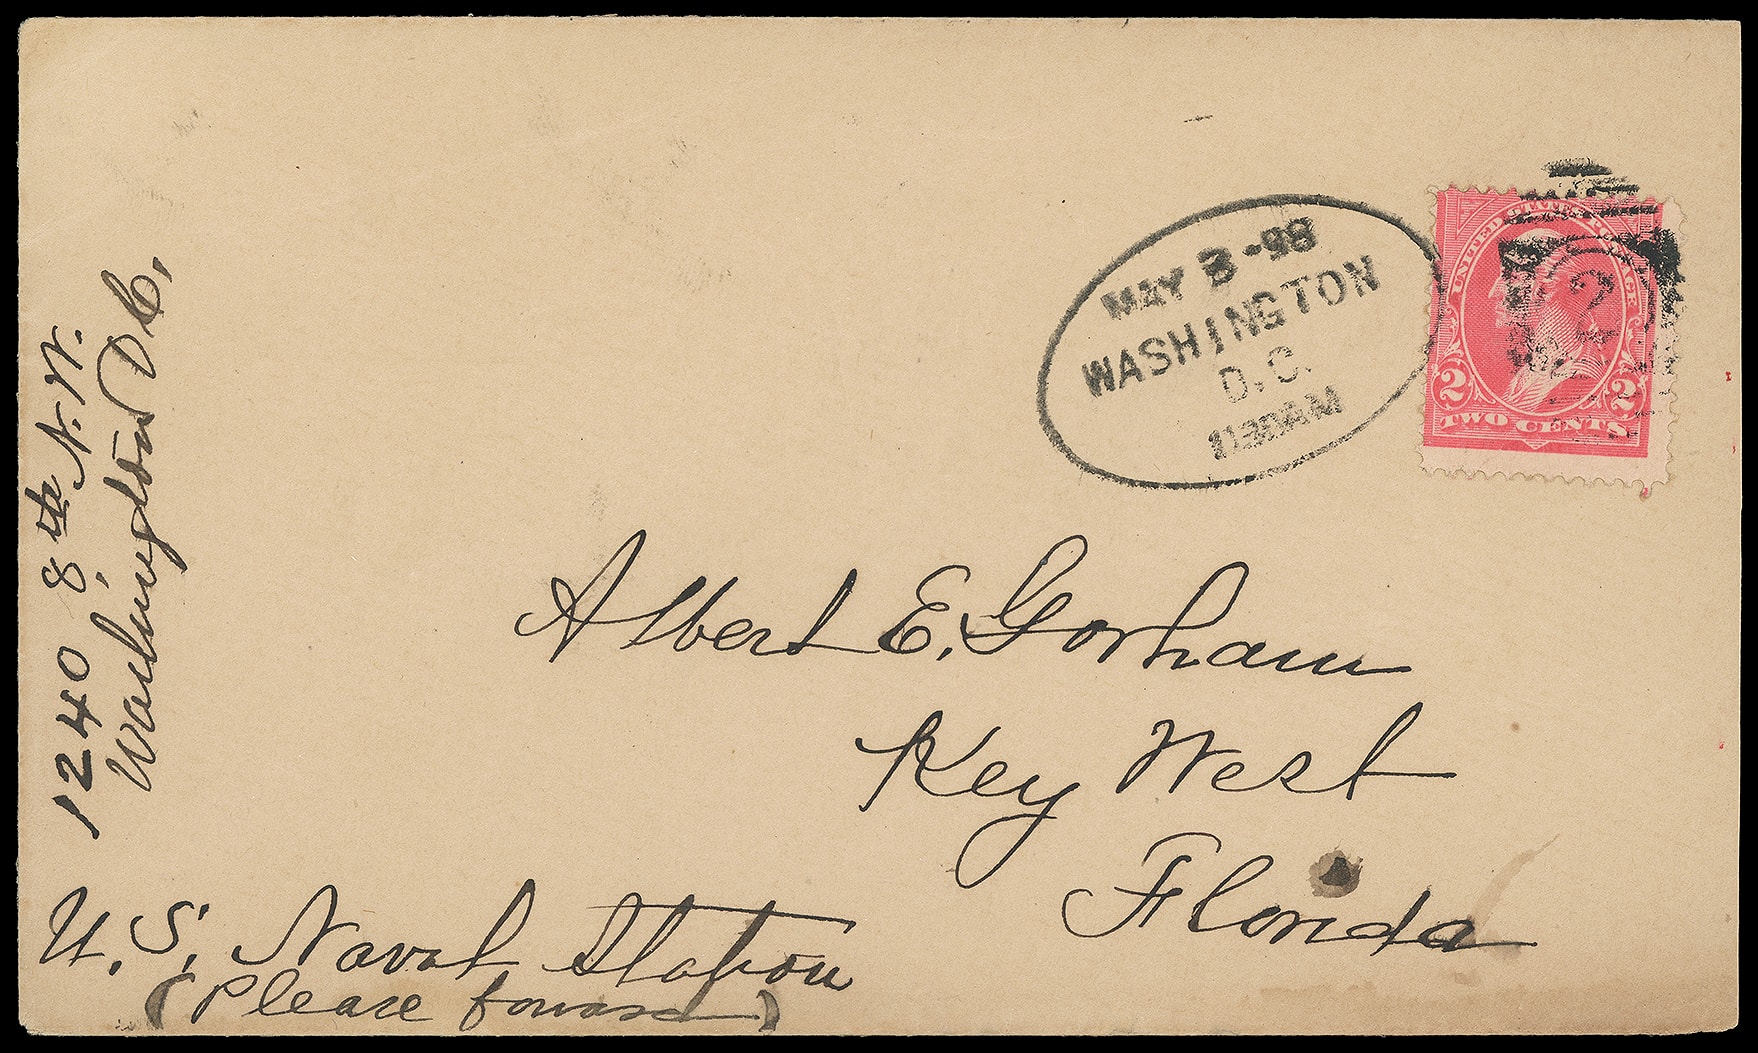 1240 8th N.W.
Washington D.C.
MAY 3-98
WASHINGTON
D.C.
UNITED STATES POSTAGE
2
2 2
TWO CENTS
Albert E. Gorham
Key West
Florida
U.S. Naval Station
(Please forward)